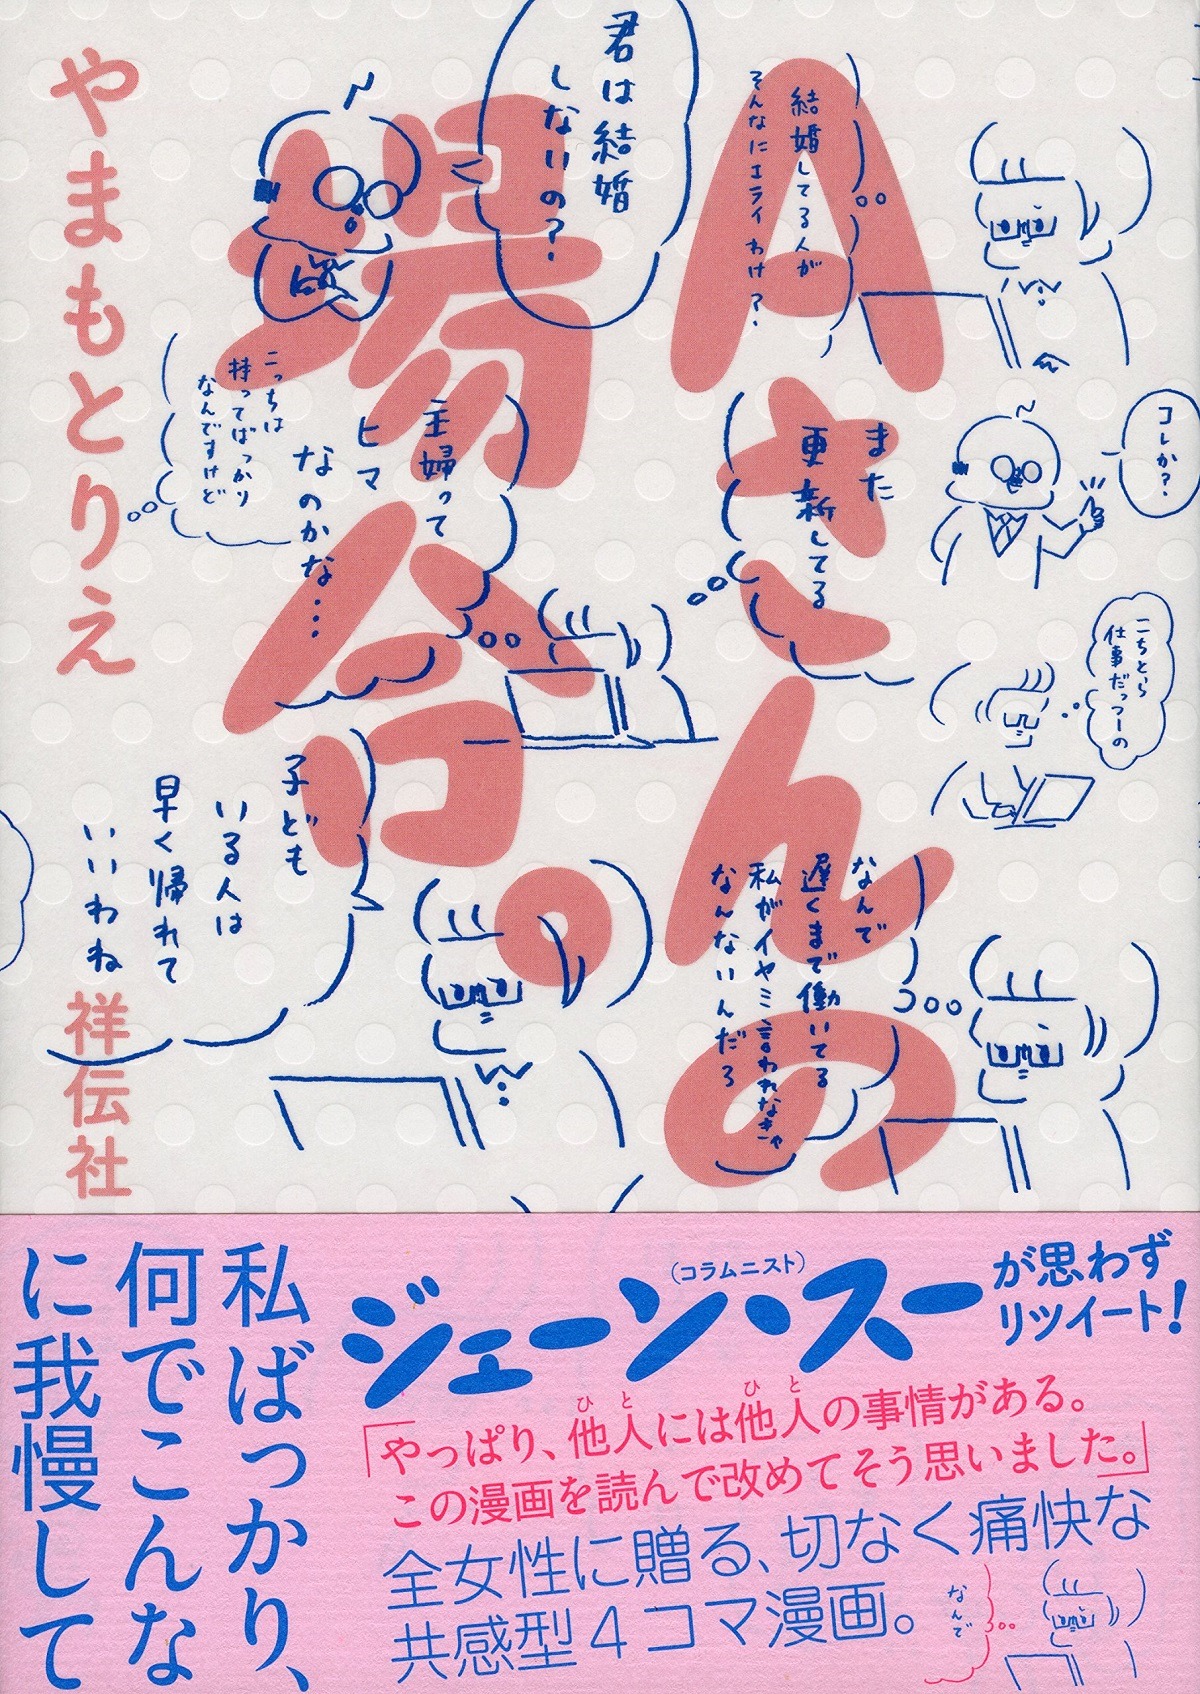 Aさんの
場合。
やまもとりえ
祥伝社
結婚してる人が
そんなにエライわけ?
君は結婚
しないの?
コレか?
こちとら
仕事だっつーの
また
更新してる
主婦って
ヒマ
なのかな…
こっちは
持ってばっかり
なんですけど
なんで
遅くまで働いてる
私がイヤミ言われなきゃ
なんないんだろ
子ども
いる人は
早く帰れて
いいわね
ジェーン・スー
(コラムニスト)
が思わず
リツイート!
「やっぱり、他人には他人の事情がある。
ひと
ひと
この漫画を読んで改めてそう思いました。」
全女性に贈る、切なく痛快な
共感型4コマ漫画。
なんで
私ばっかり、
何でこんな
に我慢して